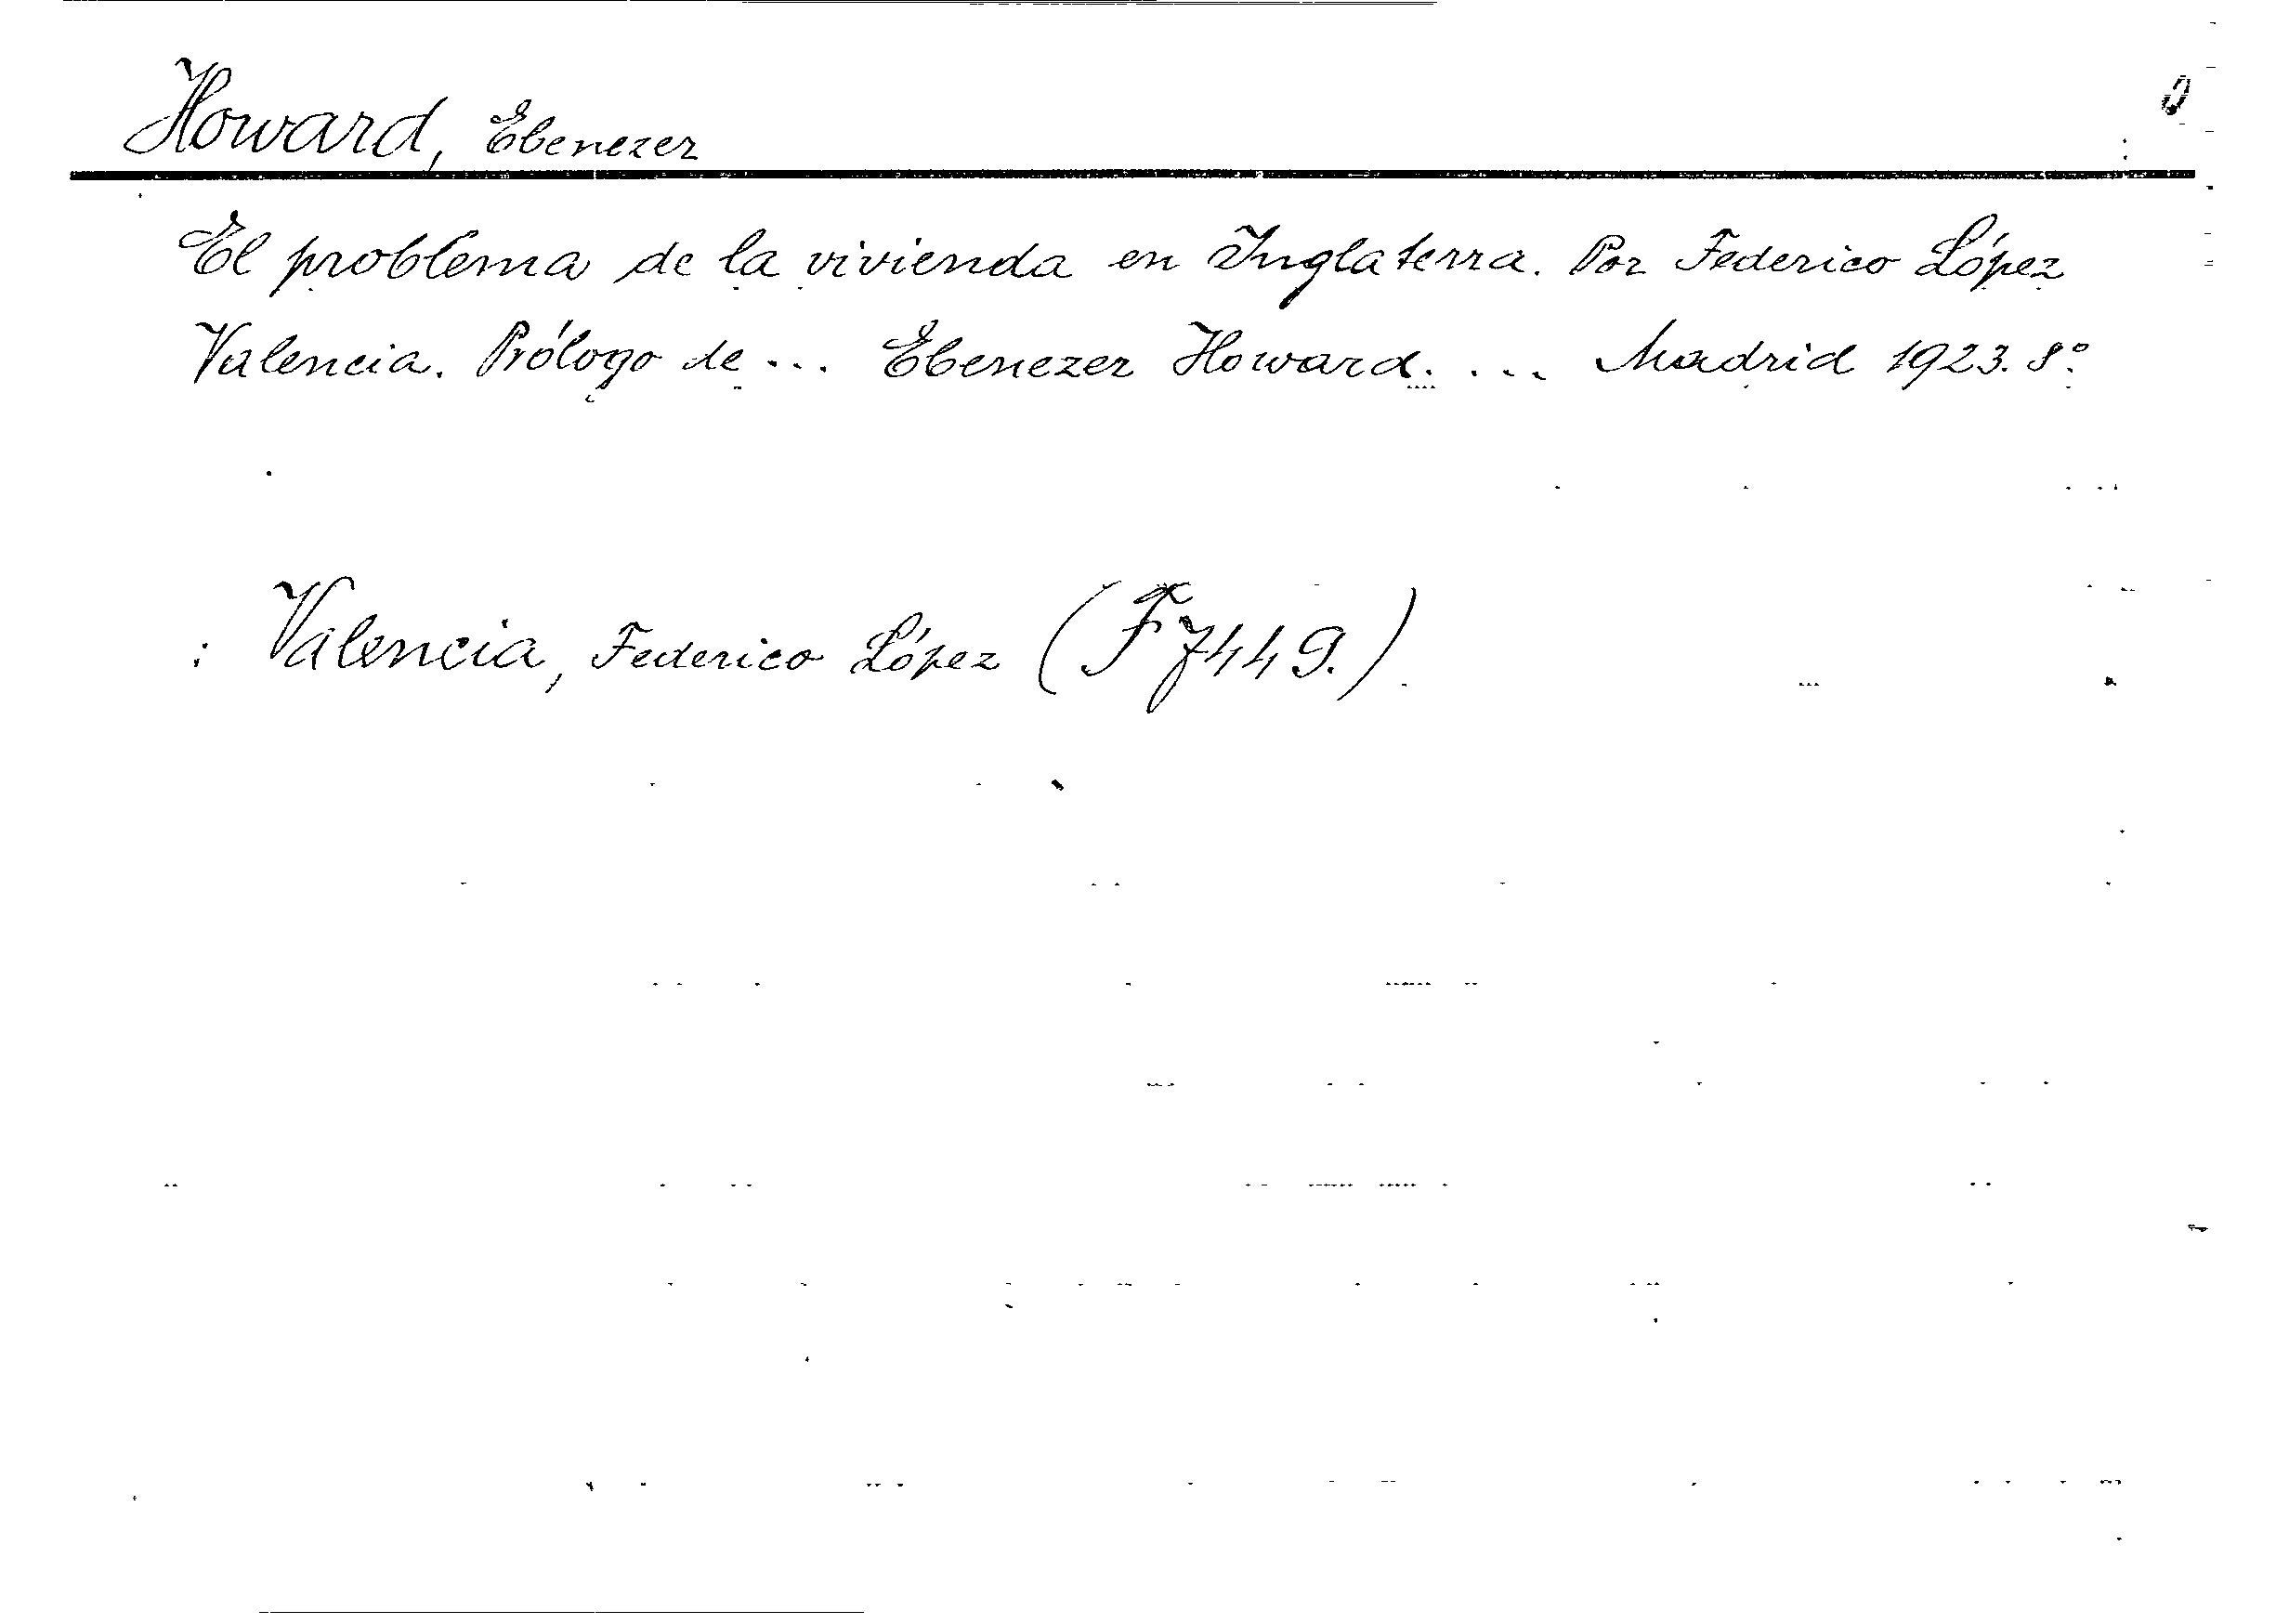 Howard, Ebenezer
El problema de la vivienda en Inglaterra. Por Federico López
Valencia. Prólogo de ... Ebenezer Howard. ... Madrid 1923. 8º
: Valencia, Federico López (F7449.)